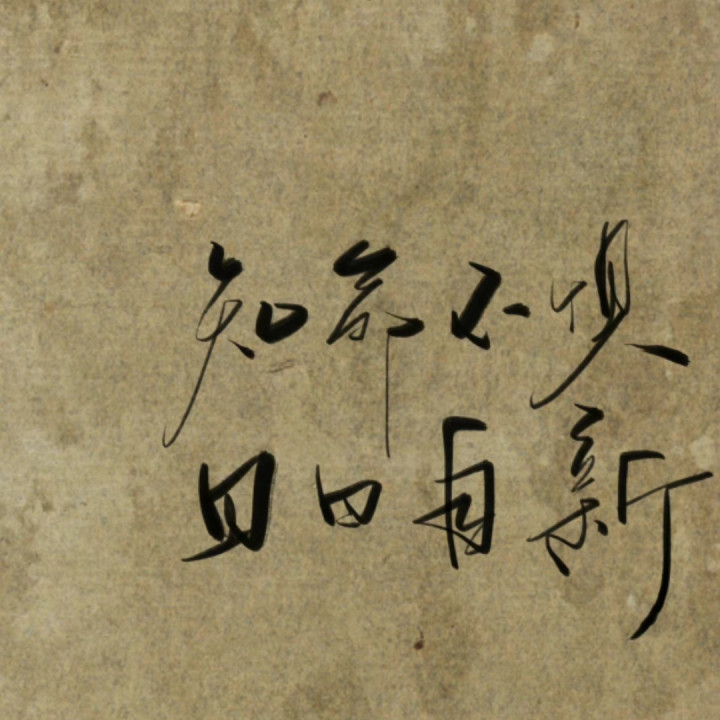 知命不惧
日日自新